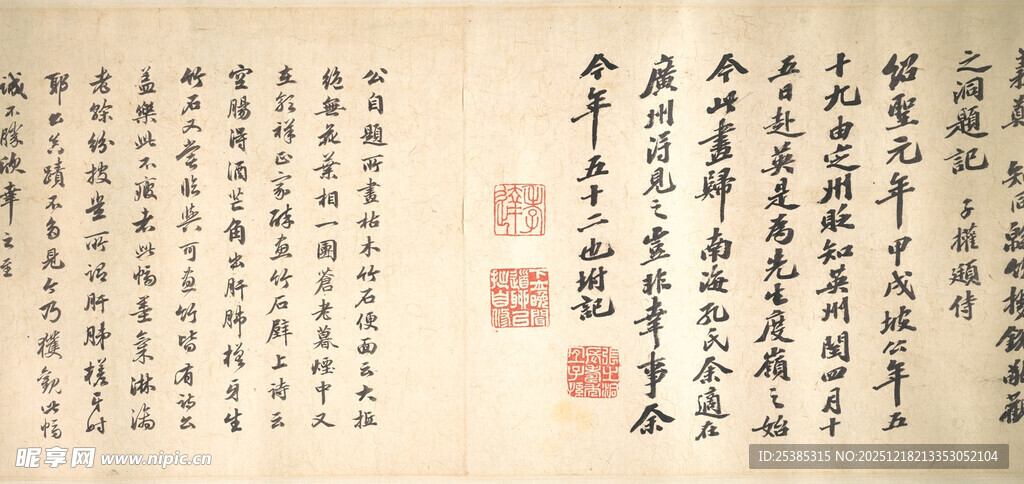 之洞題記 子權題侍
紹聖元年甲戌坡公年五
十九由定州貶知英州閏四月十
五日赴英是為先生度嶺之始
今此畫歸南海孔氏余適在
廣州得見之豈非幸事余
今年五十二也坿記
公自題所畫枯木竹石便面云大抵
絕無花葉相一團蒼老暮煙中又
郭祥正家醉畫竹石壁上詩云
空腸得酒芒角出肝肺槎牙生
竹石又嘗臨與可畫竹皆有詩公
蓋樂此不疲者此幅墨氣淋漓
老餘紛披豈所謂肝肺槎牙時
耶公真蹟不多見今乃獲觀此幅
誠不勝欣幸之至
昵享网 www.nipic.cn
ID:25385315 NO:20251218213353052104